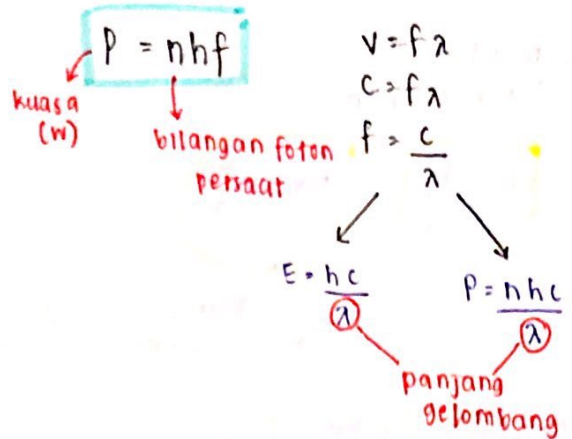 P = nhf
kuasa
(W)
bilangan foton
persaat
V = fλ
C = fλ
f = c/λ
E = hc/λ
P = nhc/λ
panjang
gelombang